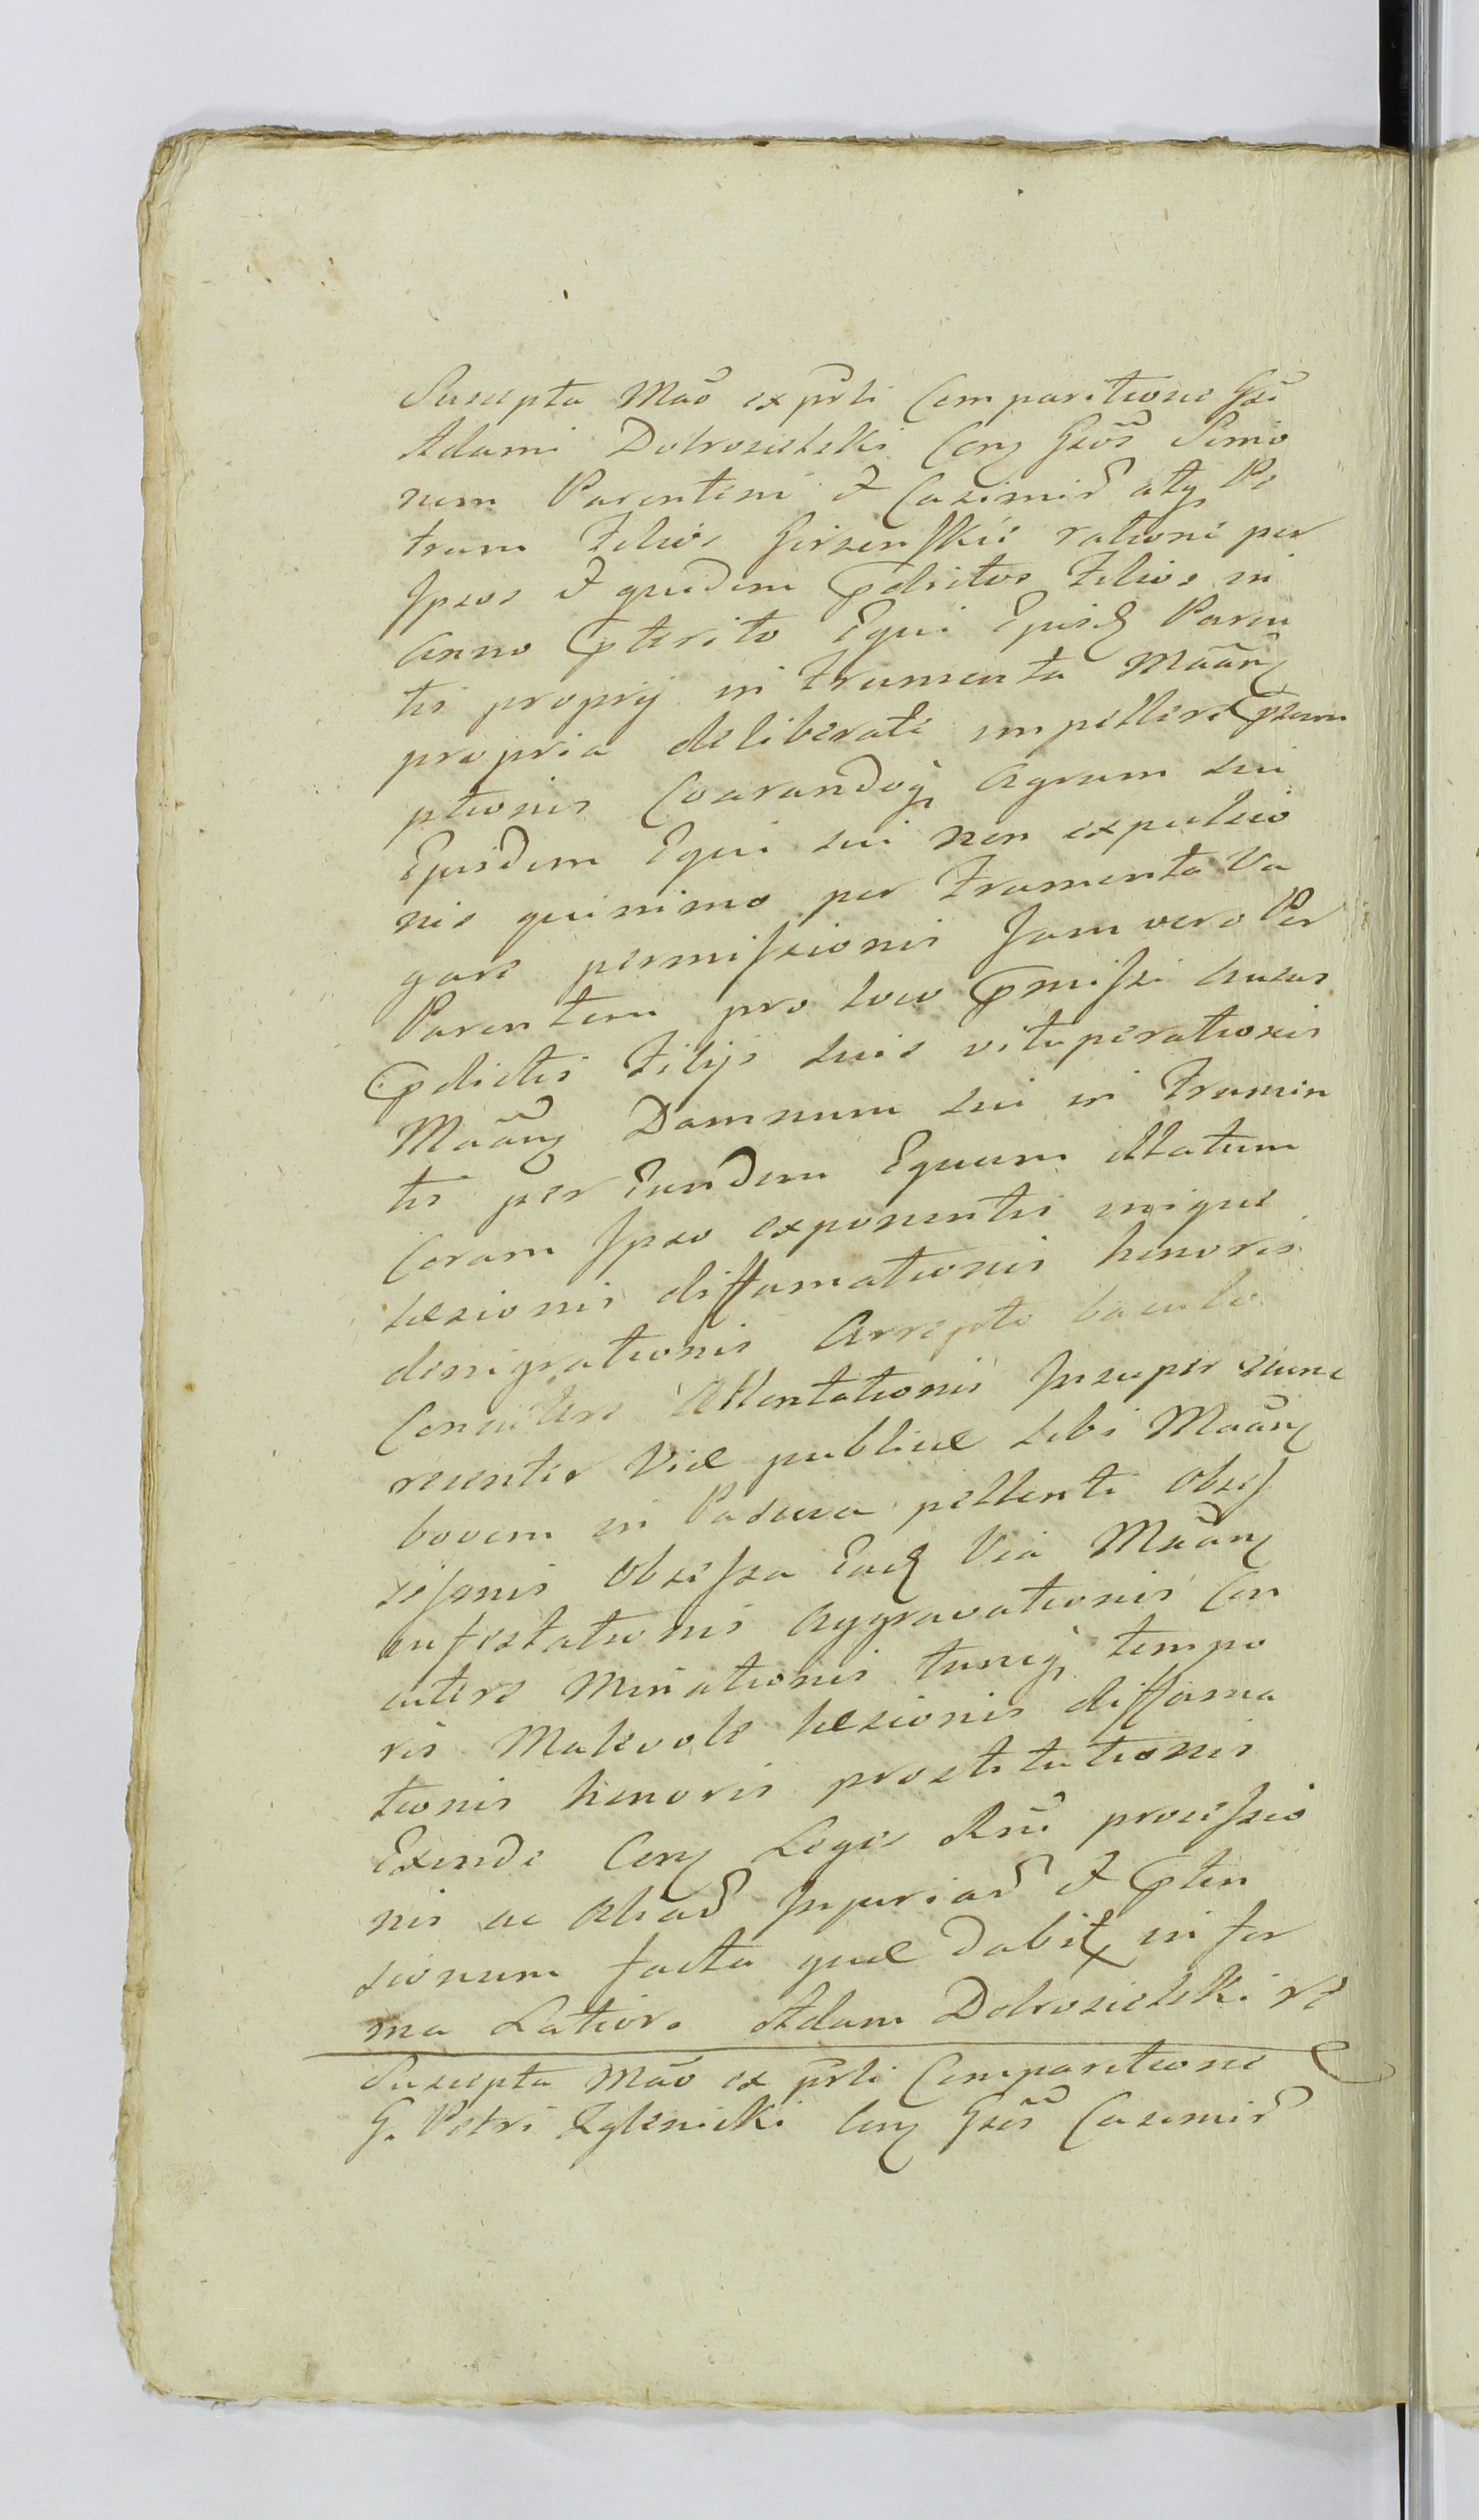 Suscepta Mãó ex prsti Comparitione Gsi
Adami Dobrosielski Con͠ Gsõs Simo
nem Parentem & Casimir̃ atq̃ Pe
trum Filios Girzenskie ratione per
Ipsos & quidem p̃dictos Filios in
Anno p̃terito Equi Ejusd̃ Paren
tis proprij in Frumenta Mãan͠
propria deliberate impellere p̃sum
ptionis Coarandoq̃ Agrum sui
Ejusdem Equi sui non expulsio
nis quinimo per Frumenta Va
gare permissionis Jam vero Per
Parentem pro loco p̃missi Ausus
p̃dictis Filijs suis vituperationis
Mãan͠ Damnum sui in Frumen
tis per Eundem Equum illatum
Coram Ipso exponentis inique
læsionis diffamationis honoris
denigrationis Arrepto baculo
Concutere Attentationis Insuper nunc
recenter Viæ publicæ sibi Mãan͠
bovem in Pascua pellenti Obses
sionis Obsessa Ead̃ Via Mãan͠
infestationis Aggravationis Con
cutere Minationis tuncq̃ tempo
ris Malevole læsionis diffama
tionis honoris prostitutionis
Exinde Con͠ Leges Rñi processio
nis ac Aliar̃ Injuriar̃ & p̃ten
sionum facta quæ dabit̃ in for
ma Latiori Adam Dobrosielski
Suscepta Mãó ex prsti Comparitione
G. Petri Zglenicki Con͠ Gsõs Casimir̃